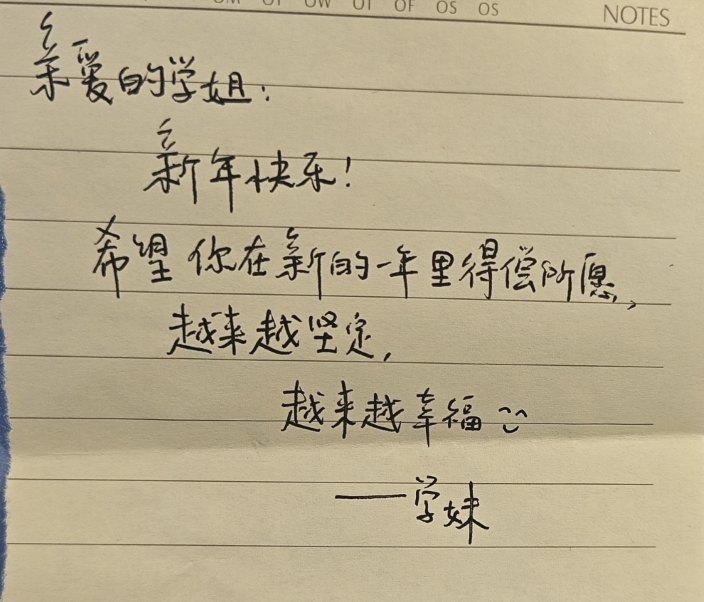 OM OT OW OT OF OS OS
NOTES
亲爱的学姐:
新年快乐!
希望你在新的一年里得偿所愿,
越来越坚定,
越来越幸福
——学妹